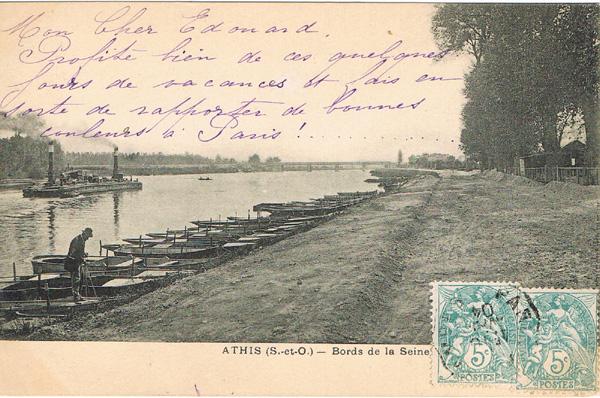 Mon Cher Edouard,
Profite bien de ces quelques
jours de vacances et fais en
sorte de rapporter de bonnes
couleurs à Paris!............
ATHIS (S.-et-O.) — Bords de la Seine
5c 5c
POSTES POSTES
04